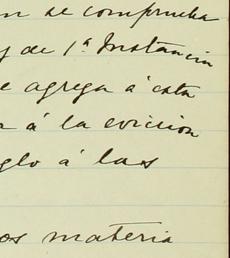 n se comprueba
y de 1ª Instancia
e agrega á esta
a á la evicción
glo á las
os materia